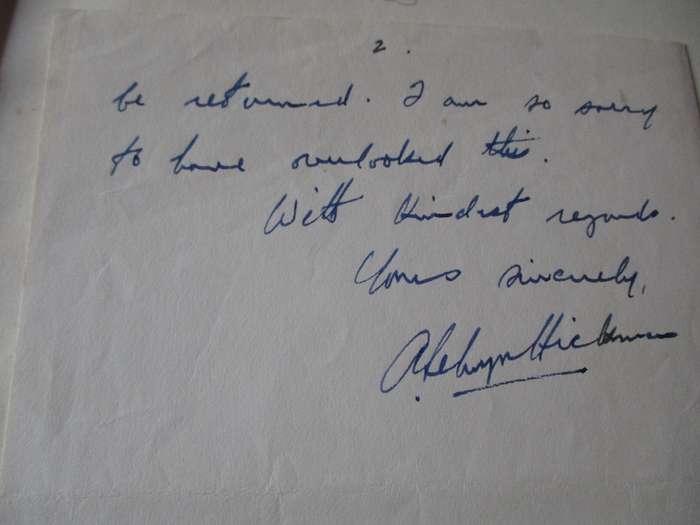 2.
be returned. I am so sorry
to have overlooked this.
With kindest regards.
Yours sincerely,
A Selwyn Hickman